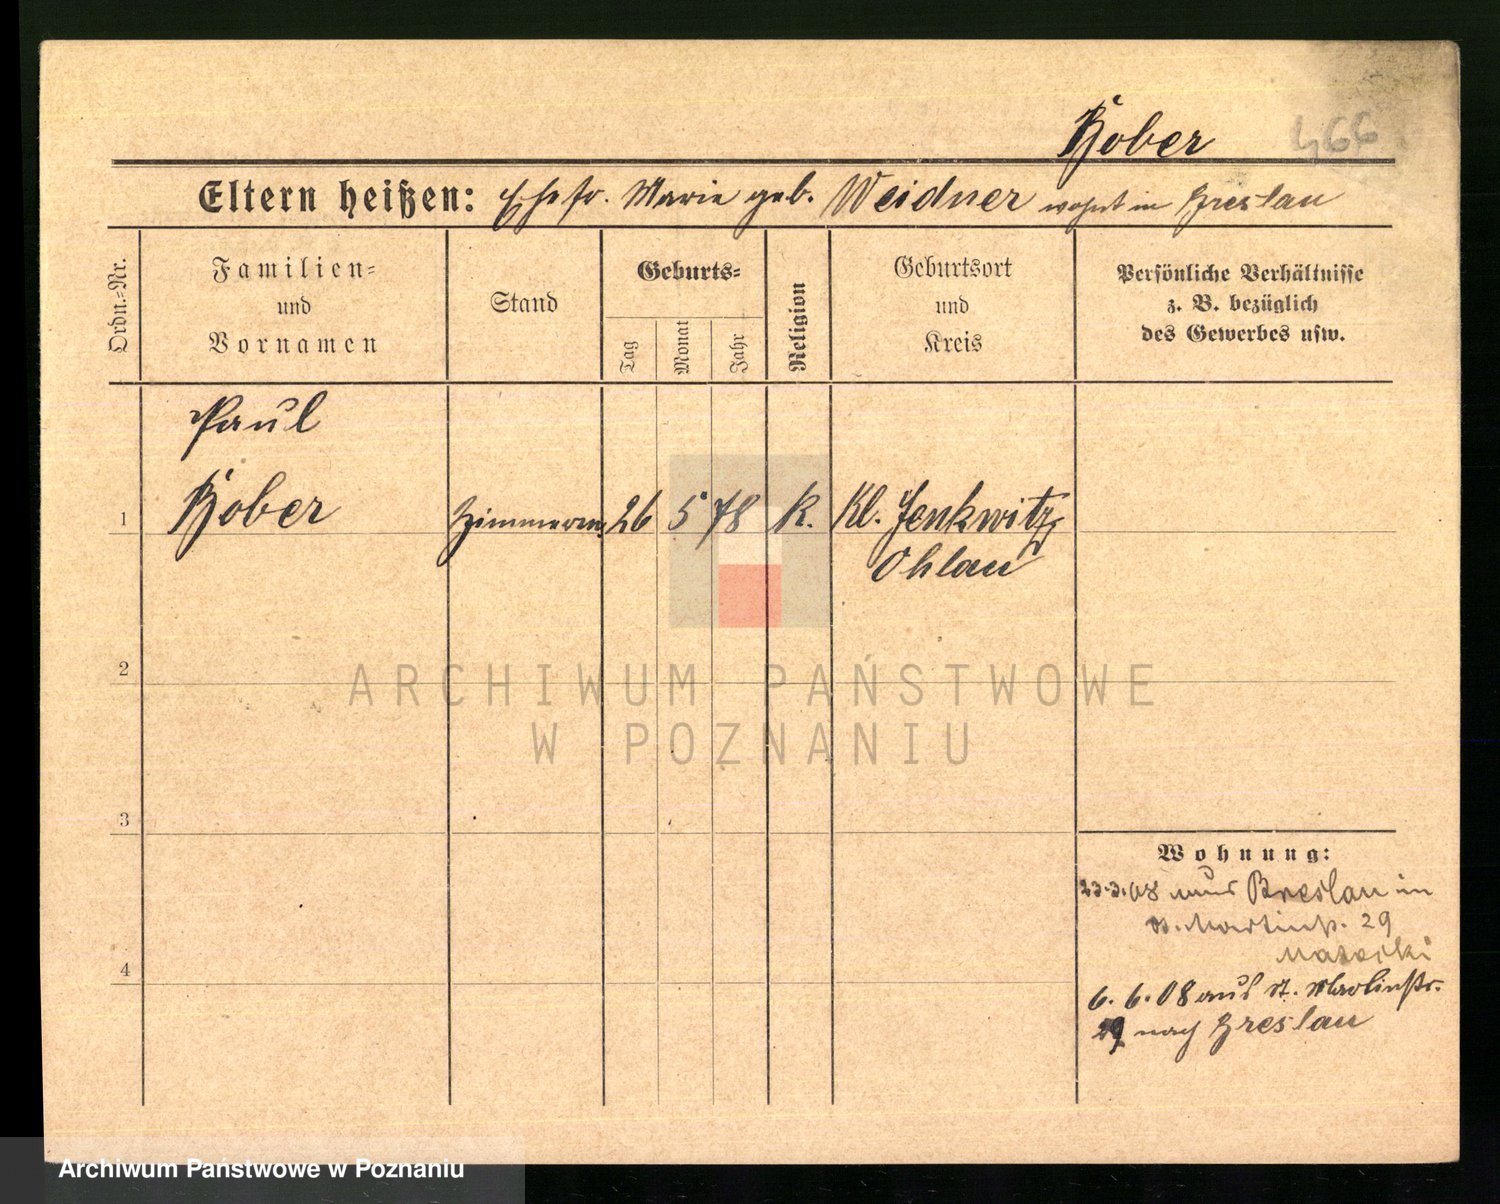 Bober
466
Eltern heißen: Ehefr. Marie geb. Weidner wohnt in Breslau
Ordn.-Nr.
Familien-
und
Vornamen
Stand
Geburts-
Tag
Monat
Jahr
Religion
Geburtsort
und
Kreis
Persönliche Verhältnisse
z. B. bezüglich
des Gewerbes usw.
Paul
1 Bober Zimmerm. 26 5 78 k. Kl. Jenkwitz
Ohlau
2
ARCHIWUM PAŃSTWOWE
W POZNANIU
3
Wohnung:
23.3.08 aus Breslau in
St. Martinstr. 29
4
6. 6. 08 aus St. Martinstr.
29 nach Breslau
Archiwum Państwowe w Poznaniu